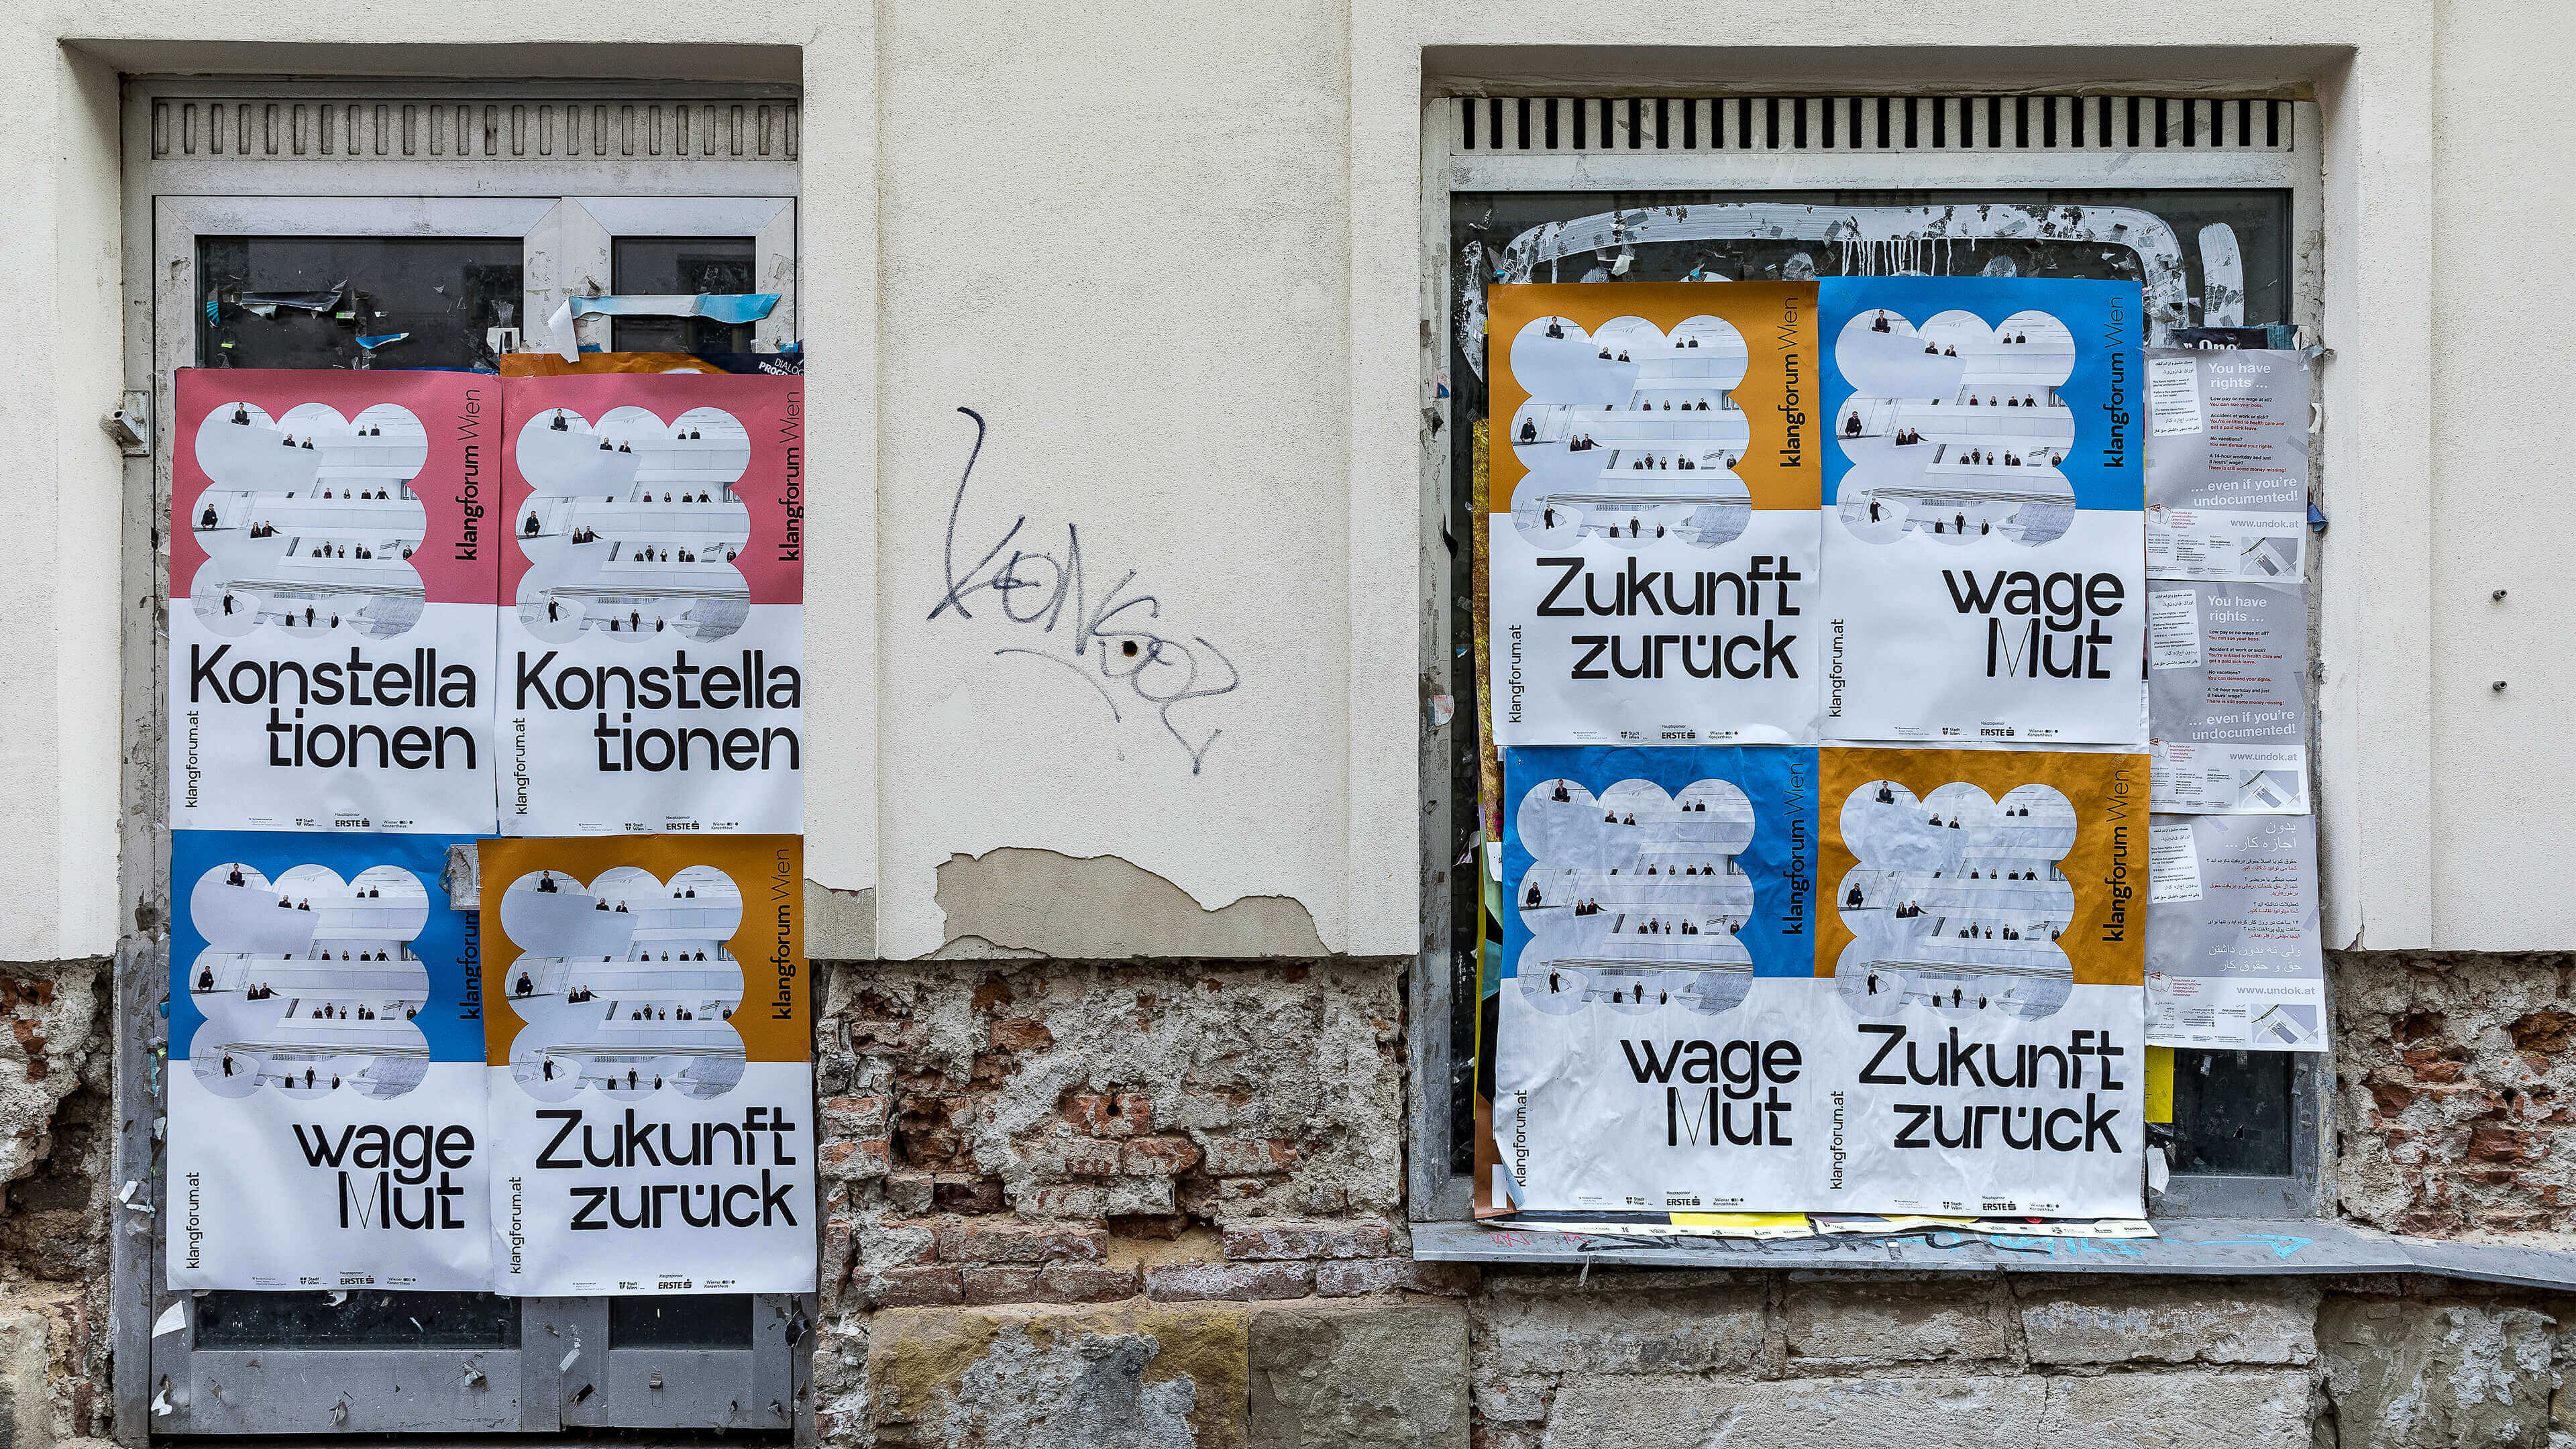 DIALOG
klangforum Wien
Konstella
tionen
klangforum.at
Hauptsponsor
Stadt
Wien
ERSTE
Wiener
Konzerthaus
klangforum Wien
Konstella
tionen
klangforum.at
Hauptsponsor
Stadt
Wien
ERSTE
Wiener
Konzerthaus
klangforum
wage
Mut
klangforum.at
Hauptsponsor
Stadt
Wien
ERSTE
Wiener
Konzerthaus
klangforum Wien
Zukunft
zurück
klangforum.at
Hauptsponsor
Stadt
Wien
ERSTE
Wiener
Konzerthaus
klangforum Wien
Zukunft
zurück
klangforum.at
Hauptsponsor
Stadt
Wien
ERSTE
Wiener
Konzerthaus
klangforum Wien
wage
Mut
klangforum.at
Hauptsponsor
Stadt
Wien
ERSTE
Wiener
Konzerthaus
klangforum Wien
wage
Mut
klangforum.at
Hauptsponsor
Stadt
Wien
ERSTE
Wiener
Konzerthaus
klangforum Wien
Zukunft
zurück
klangforum.at
Hauptsponsor
Stadt
Wien
ERSTE
Wiener
Konzerthaus
You have
rights ...
Low pay or no wage at all?
You can sue your boss.
Accident at work or sick?
You're entitled to health care and
get a paid sick leave.
No vacations?
You can demand your rights.
A 14-hour workday and just
8 hours' wage?
There is still some money missing!
... even if you're
undocumented!
www.undok.at
You have
rights ...
Low pay or no wage at all?
You can sue your boss.
Accident at work or sick?
You're entitled to health care and
get a paid sick leave.
No vacations?
You can demand your rights.
A 14-hour workday and just
8 hours' wage?
There is still some money missing!
... even if you're
undocumented!
www.undok.at
بدون
اجازه کار...
حق و حقوق کار
www.undok.at